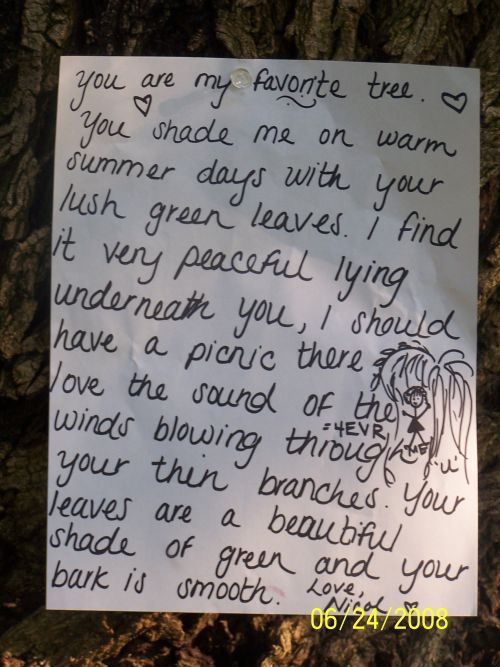 you are my favorite tree.
You shade me on warm
summer days with your
lush green leaves. I find
it very peaceful lying
underneath you, I should
have a picnic there
love the sound of the
winds blowing through
=4EVR
"ME"
"U"
your thin branches. your
leaves are a beautiful
shade of green and your
bark is smooth. Love,
06/24/2008